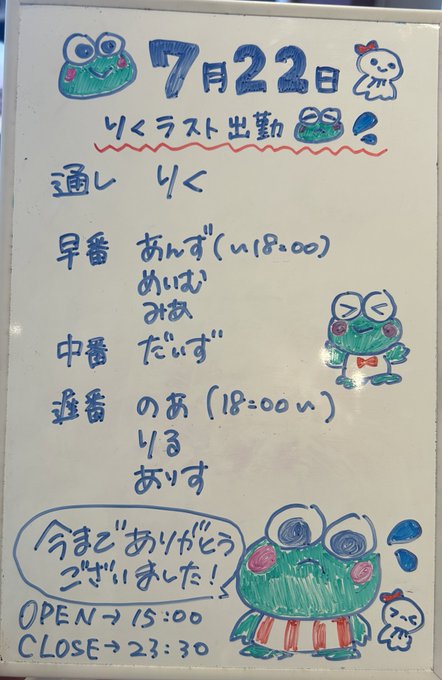 7月22日
りくラスト出勤
通し りく
早番 あんず(〜18:00)
めいむ
みあ
中番 だいず
遅番 のあ (18:00〜)
りる
ありす
今までありがとう
ございました!
OPEN→15:00
CLOSE→23:30